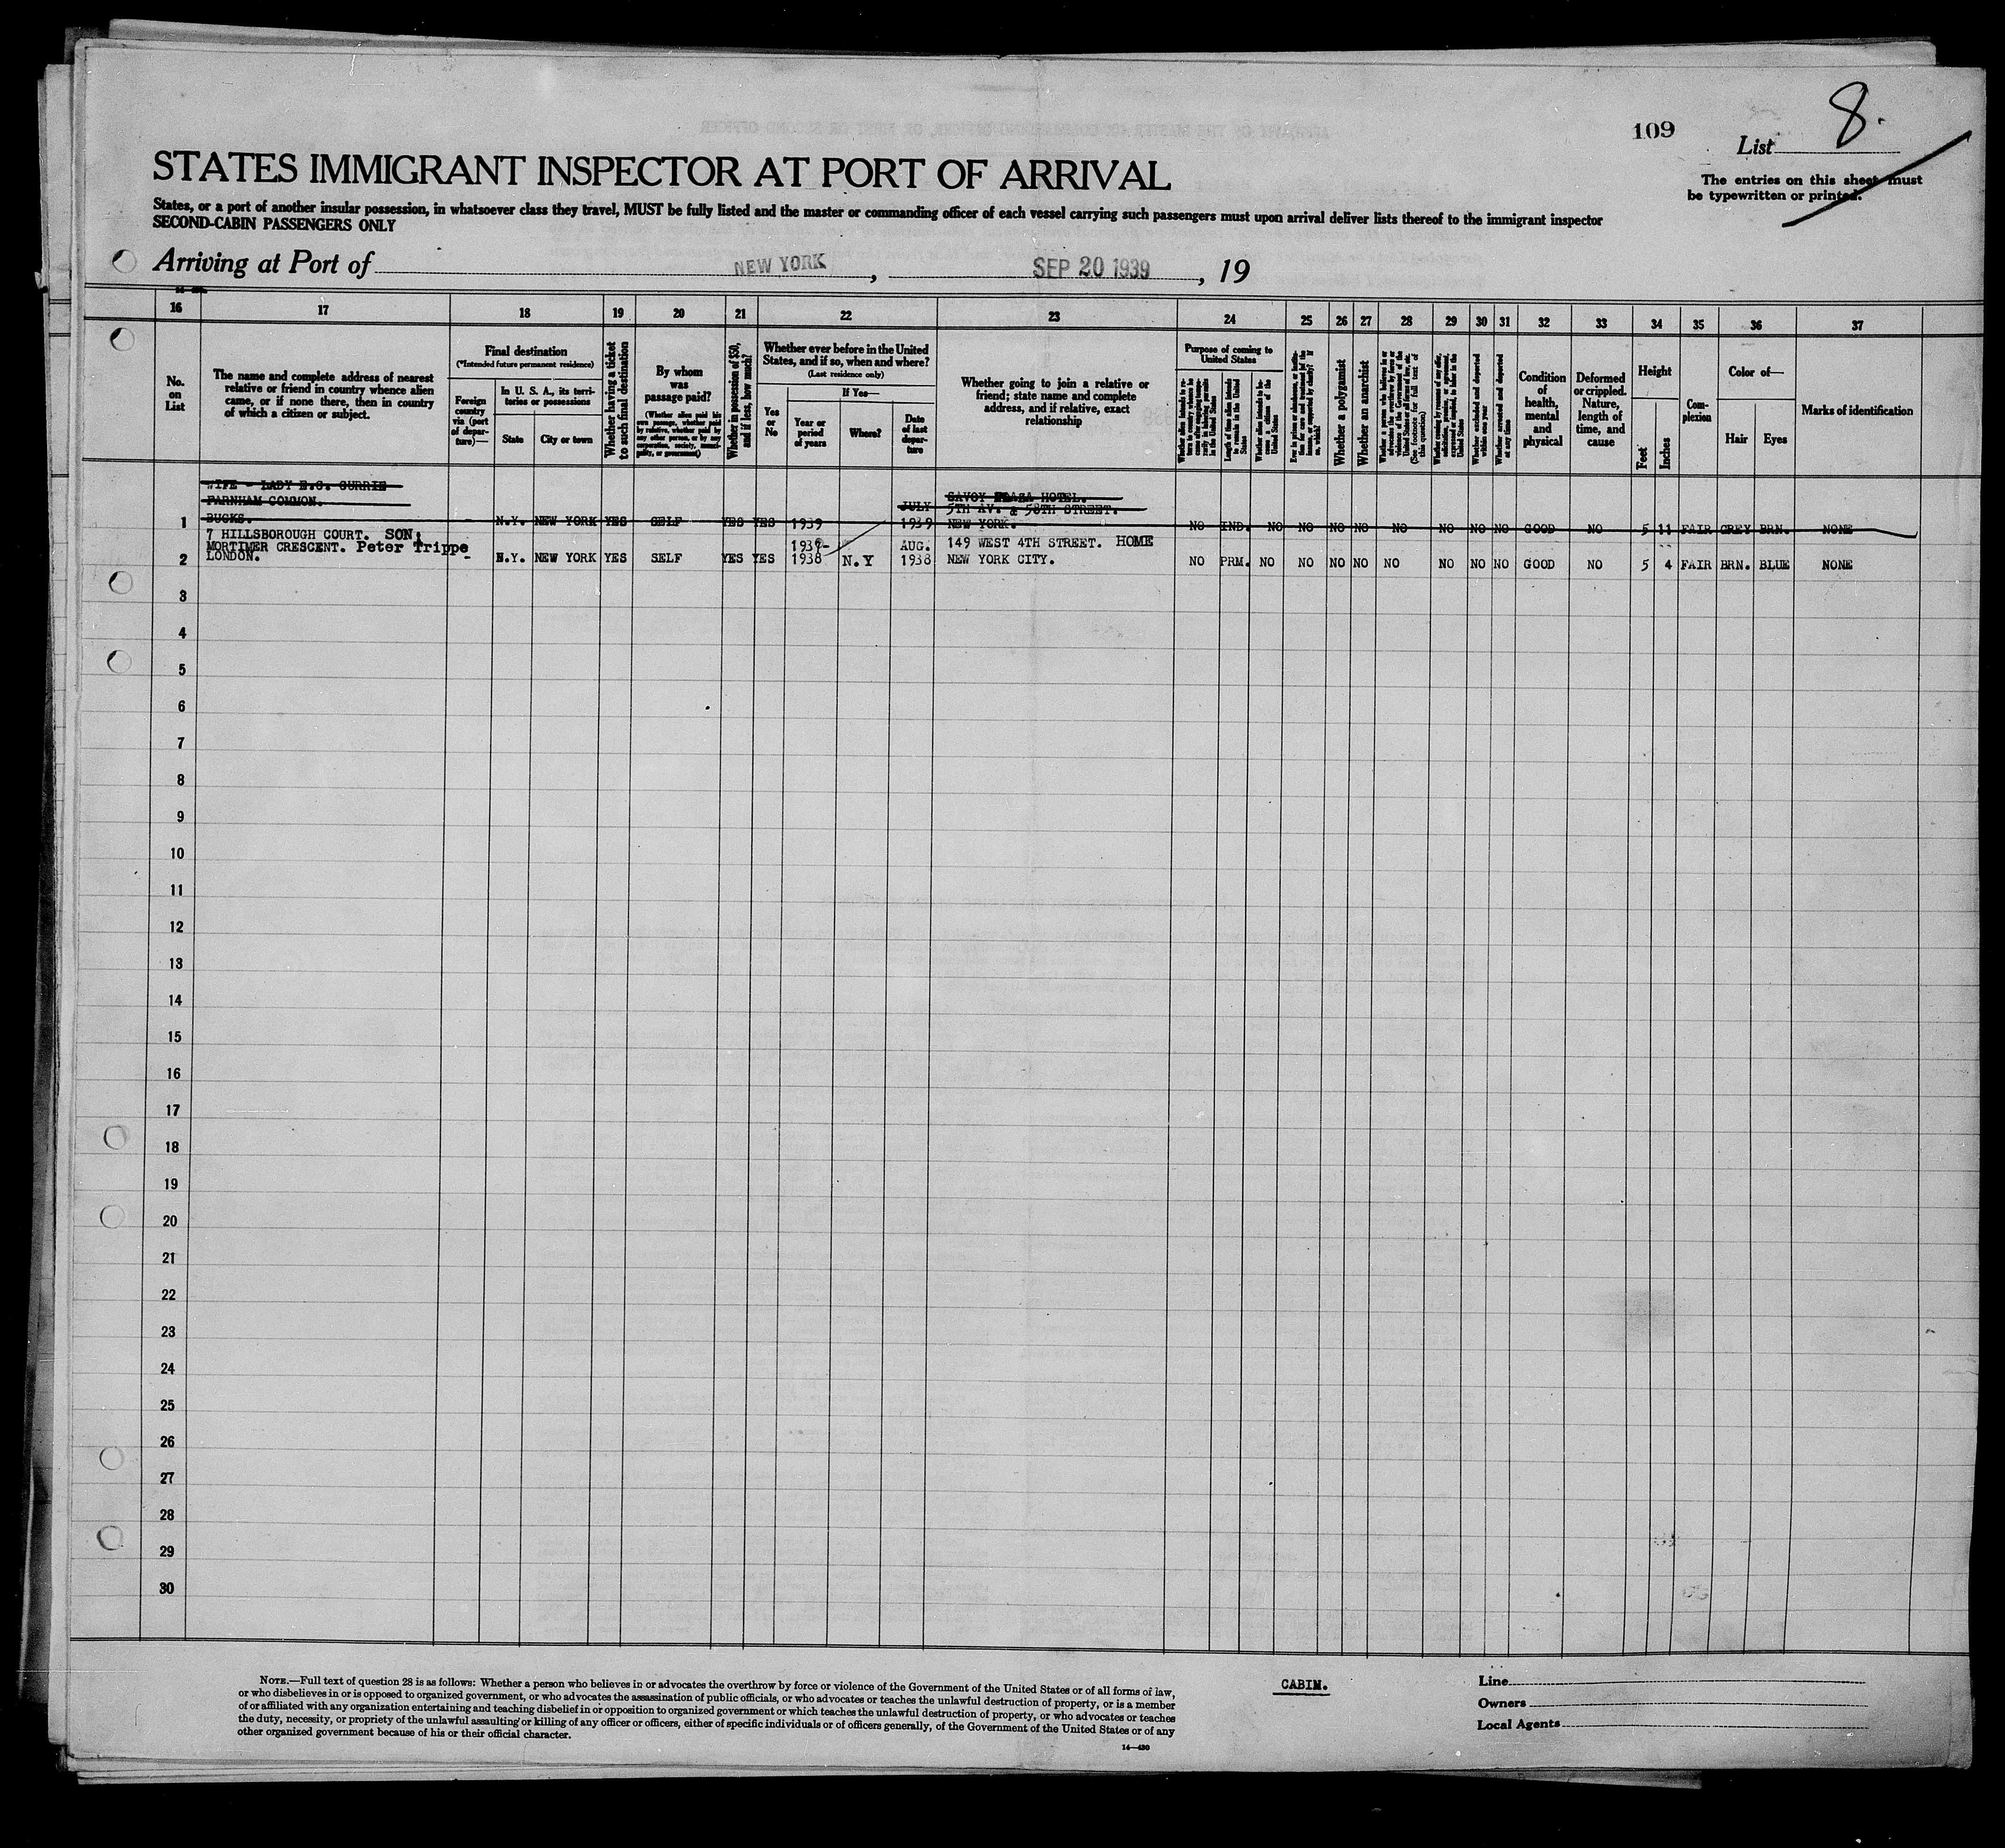 109
List 8.
STATES IMMIGRANT INSPECTOR AT PORT OF ARRIVAL
The entries on this sheet must
be typewritten or printed.
States, or a port of another insular possession, in whatsoever class they travel, MUST be fully listed and the master or commanding officer of each vessel carrying such passengers must upon arrival deliver lists thereof to the immigrant inspector
SECOND-CABIN PASSENGERS ONLY
Arriving at Port of NEW YORK, SEP 20 1939, 19
16 17 18 19 20 21 22 23 24 25 26 27 28 29 30 31 32 33 34 35 36 37
No. on List
The name and complete address of nearest
relative or friend in country whence alien
came, or if none there, then in country
of which a citizen or subject.
Final destination
(*Intended future permanent residence)
Foreign country via (port of departure)—
In U. S. A., its territories or possessions
State
City or town
Whether having a ticket to such final destination
By whom was passage paid?
(Whether alien paid his own passage, whether paid by relative, whether paid by any other person, or by any corporation, society, municipality, or government)
Whether in possession of $50, and if less, how much?
Whether ever before in the United
States, and if so, when and where?
(Last residence only)
Yes or No
If Yes—
Year or period of years
Where?
Date of last departure
Whether going to join a relative or
friend; state name and complete
address, and if relative, exact
relationship
Purpose of coming to
United States
Length of time alien intends to remain in the United States
Whether alien intends to become a citizen of the United States
Whether a polygamist
Whether an anarchist
(See footnote for full text of this question)
Whether excluded and deported within one year
Whether arrested and deported at any time
Condition of health, mental and physical
Deformed or crippled. Nature, length of time, and cause
Height
Feet
Inches
Complexion
Color of—
Hair
Eyes
Marks of identification
WIFE - LADY E.G. CURRIE
FARNHAM COMMON.
SAVOY PLAZA HOTEL.
JULY 5TH AV. & 58TH STREET.
1 BUCKS. N.Y. NEW YORK YES SELF YES YES 1939 1939 NEW YORK. NO IND. NO NO NO NO NO NO NO NO GOOD NO 5 11 FAIR GREY BRN. NONE
7 HILLSBOROUGH COURT. SON;
MORTIMER CRESCENT. Peter Trippe 1937- AUG. 149 WEST 4TH STREET. HOME
2 LONDON. - N.Y. NEW YORK YES SELF YES YES 1938 N.Y 1938 NEW YORK CITY. NO PRM. NO NO NO NO NO NO NO NO GOOD NO 5 4 FAIR BRN. BLUE NONE
3
4
5
6
7
8
9
10
11
12
13
14
15
16
17
18
19
20
21
22
23
24
25
26
27
28
29
30
NOTE.—Full text of question 28 is as follows: Whether a person who believes in or advocates the overthrow by force or violence of the Government of the United States or of all forms of law,
or who disbelieves in or is opposed to organized government, or who advocates the assassination of public officials, or who advocates or teaches the unlawful destruction of property, or is a member
of or affiliated with any organization entertaining and teaching disbelief in or opposition to organized government or which teaches the unlawful destruction of property, or who advocates or teaches
the duty, necessity, or propriety of the unlawful assaulting or killing of any officer or officers, either of specific individuals or of officers generally, of the Government of the United States or of any
other organized government because of his or their official character.
14—430
CABIN.
Line
Owners
Local Agents